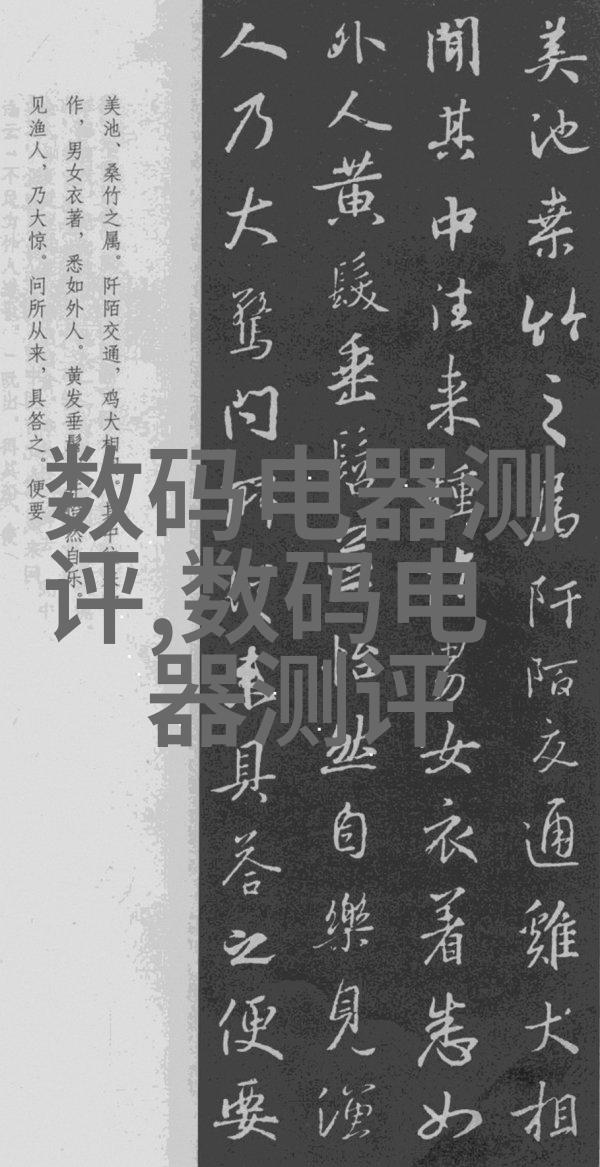 美池桒竹之属阡陌交通雞犬相
聞其中往来種作男女衣着悉如
外人黄髮垂髫怡然自樂見漁
人乃大驚问所来具荅之便要
美池、桑竹之属。阡陌交通，鸡犬相。其中
作，男女衣著，悉如外人。黄发垂髫然自乐。
见渔人，乃大惊。问所从来，具答之。便要
数码电器测
评,数码电
器测评